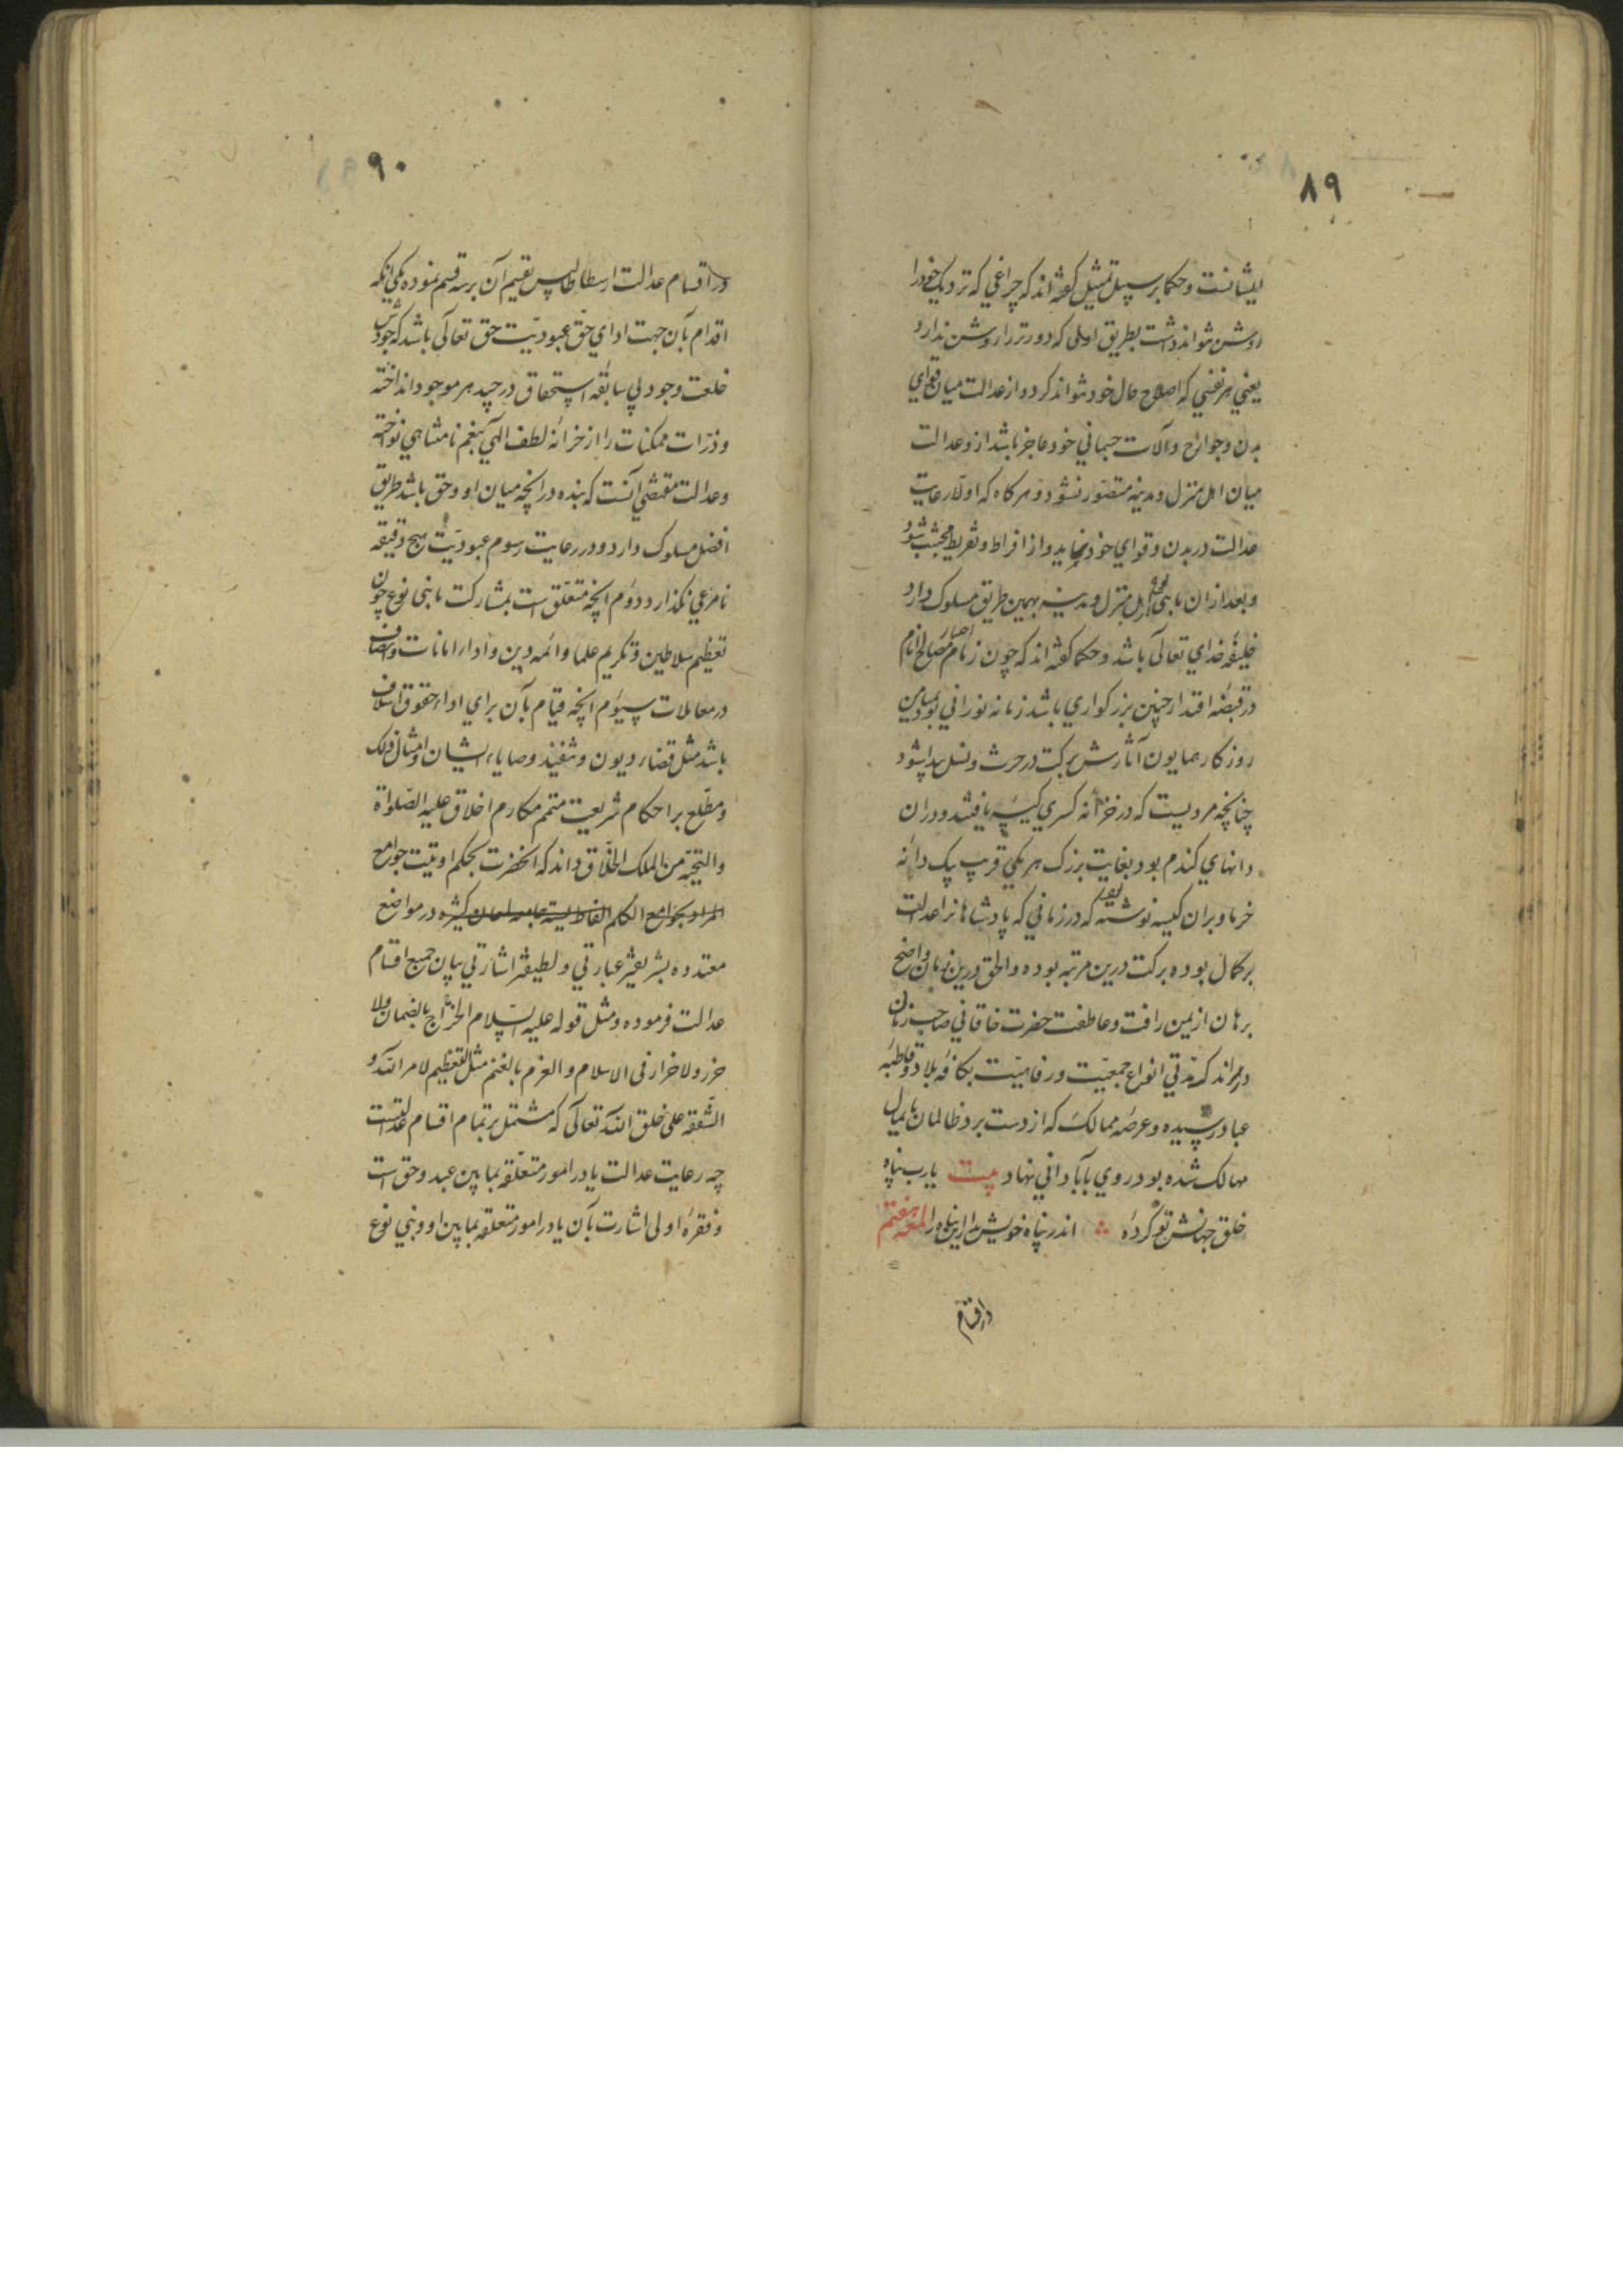 ۸۹
ایشانست و حکما بر سبیل تمثیل کفته اند که چراغی که نزدیک خود را
روشن نتواند داشت بطریق اولی که دورتر را روشن ندارد
یعنی هر نفسی که اصلاح حال خود نتواند کرد و از عدالت میان قوای
بدن و جوارح و آلات جسمانی خود عاجز باشد ازو عدالت
میان اهل منزل و مدینه متصوّر نشود و هر کاه که اولا رعایت
عدالت در بدن و قوای خود نماید و از افراط و تفریط مجتنب شود
و بعد از ان با بنی نوع و اهل منزل و مدینه بهمین طریق مسلوک دارد
خلیفهٔ خدای تعالی باشد و حکما کفته اند که چون زمام مصالح انام
در قبضهٔ اقتدار چنین بزرکواری باشد زمانه نورانی بود و بمیامن
روزکار همایون آثارش برکت در حرث و نسل پیدا شود
چنانچه مرویست که در خزانه کسری کیسه یافتند و در ان
دانهای کندم بود بغایت بزرک هر یکی قریب یک دانه
خرما و بران کیسه نوشته بود که در زمانی که پادشاهانرا عدالت
بر کمال بوده برکت درین مرتبه بوده و الحق درین زمان واضح
برهان از یمن رافت و عاطفت حضرت خاقانی صاحب زمان
در اندک مدّتی انواع جمعیّت و رفاهیّت بکافهٔ بلاد و قاطبهٔ
عباد رسیده و عرصهٔ ممالک که از دست برد ظالمان پایمال
مهالک شده بود روی بآبادانی نهاد بیت یا رب پناه
خلق جهانش تو کردهٔ ∴ اندر پناه خویش بدار این پناه را لمعه هفتم
در اقسام
۹۰
در اقسام عدالت ارسطاطالیس تقسیم آن بر سه قسم نموده یکی آنکه
اقدام بآن جهت ادای حقّ عبودیّت حق تعالی باشد که جودش
خلعت وجود بی سابقهٔ استحقاق در جید هر موجود انداخته
و ذرّات ممکنات را از خزانه لطف الهی بنعم نامتناهی نواخته
و عدالت مقتضی آنست که بنده در آنچه میان او و حق باشد طریق
افضل مسلوک دارد و در رعایت رسوم عبودیّت هیچ دقیقه
نامرعی نکذارد دوّم آنچه متعلّق است بمشارکت با بنی نوع چون
تعظیم سلاطین و تکریم علما و ائمه دین و اداء امانات و انصاف
در معاملات سیوّم آنچه قیام بآن برای اداء حقوق اسلاف
باشد مثل قضاء دیون و تنفیذ وصایاء ایشان و امثال ذلک
و مطّلع بر احکام شریعت متمم مکارم اخلاق علیه الصّلواة
و التحیّه من الملک الخلّاق داند که آنحضرت بحکم اوتیت جوامع
المراد بجوامع الکلم الفاظ یسیره جامعه لمعان کثیره در مواضع
متعدده بشریفتر عبارتی و لطیفتر اشارتی بیان جمیع اقسام
عدالت فرموده و مثل قوله علیه السّلام الخراج بالضمان و لا
ضرر و لا ضرار فی الاسلام و الغرم بالغنم مثل التعظیم لامر الله و
الشّفقه علی خلق الله تعالی که مشتمل بر تمام اقسام عدالتست
چه رعایت عدالت یا در امور متعلّقه بما بین عبد و حق است
و فقرهٔ اولی اشارت بآن یا در امور متعلقه بما بین او و بنی نوع